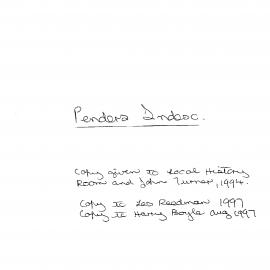 Penders Index.
Copy given to Local History
Room and John Turner, 1994.
Copy to Les Readman 1997
Copy to Harry Boyle aug 1997